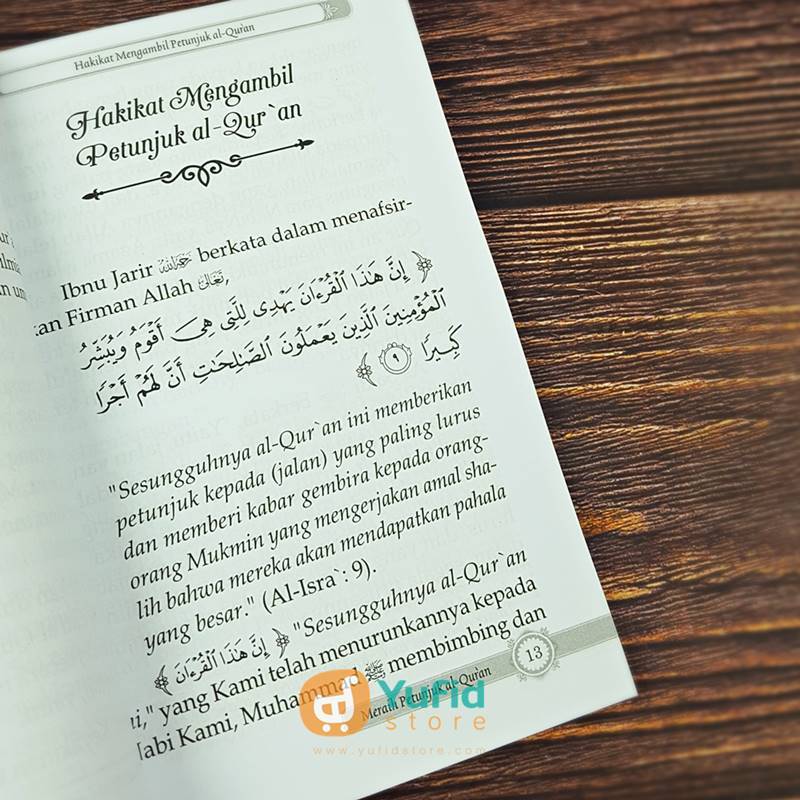 Hakikat Mengambil Petunjuk al-Qur`an
Hakikat Mengambil
Petunjuk al-Qur`an
Ibnu Jarir رحمه الله berkata dalam menafsir-
kan Firman Allah تعالى,
﴿ إِنَّ هَٰذَا ٱلْقُرْءَانَ يَهْدِى لِلَّتِى هِىَ أَقْوَمُ وَيُبَشِّرُ
ٱلْمُؤْمِنِينَ ٱلَّذِينَ يَعْمَلُونَ ٱلصَّٰلِحَٰتِ أَنَّ لَهُمْ أَجْرًا
كَبِيرًا ٩ ﴾
"Sesungguhnya al-Qur`an ini memberikan
petunjuk kepada (jalan) yang paling lurus
dan memberi kabar gembira kepada orang-
orang Mukmin yang mengerjakan amal sha-
lih bahwa mereka akan mendapatkan pahala
yang besar." (Al-Isra`: 9).
﴿ إِنَّ هَٰذَا ٱلْقُرْءَانَ ﴾ "Sesungguhnya al-Qur`an
ini," yang Kami telah menurunkannya kepada
Nabi Kami, Muhammad ﷺ membimbing dan
Meraih Petunjuk al-Qur`an
13
Yufid
store
www.yufidstore.com